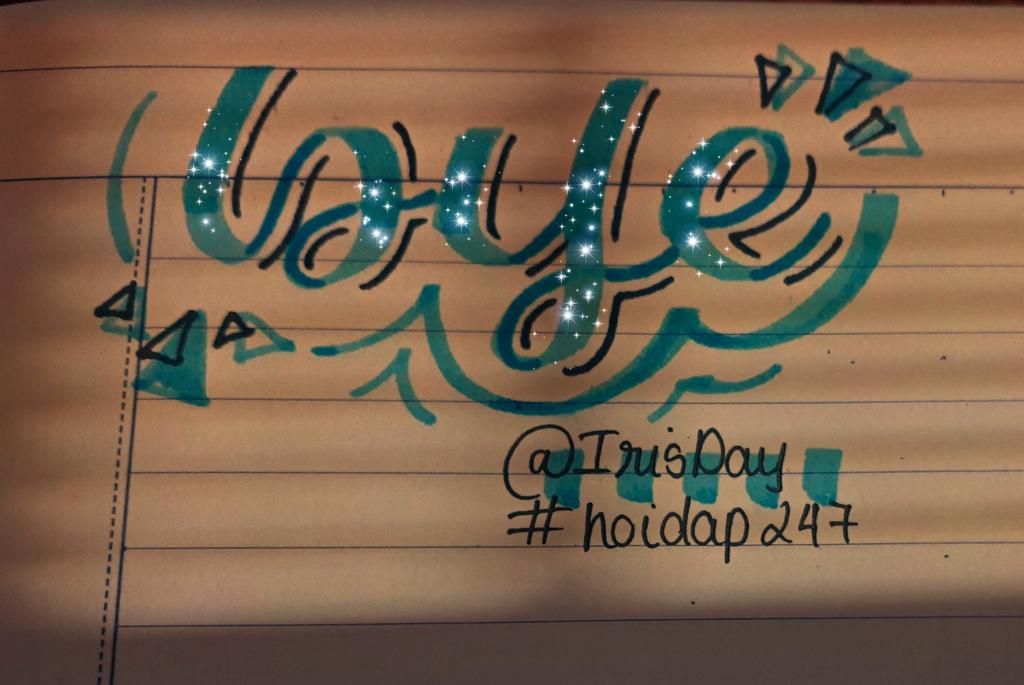 loye
@IrisDay
#hoidap247